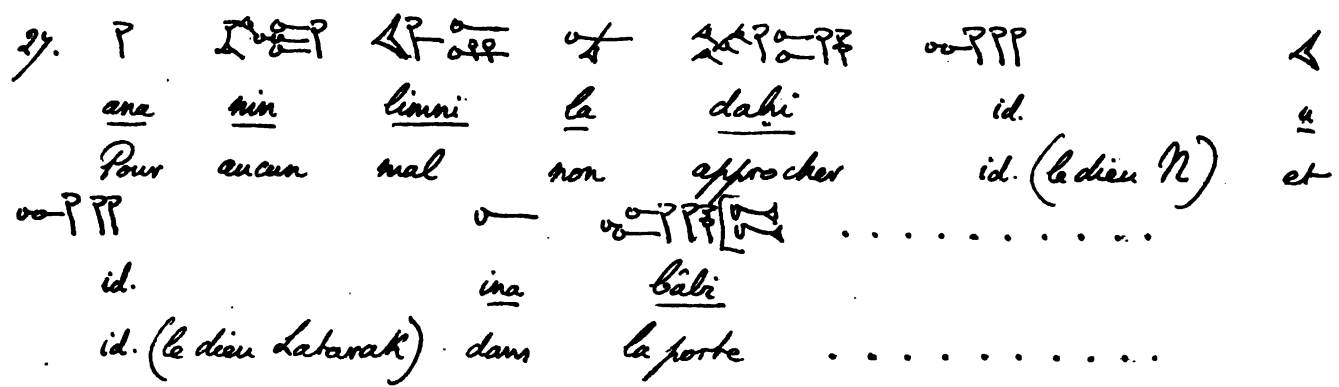 27. 𒁹 𒉡 𒌋
ana nin limni la daḫi id. u
Pour aucun mal non approcher id. (le dieu N) et
𒀸 . . . . . . . . . .
id. ina bâbi
id. (le dieu Latarak) dans la porte . . . . . . . . . . .